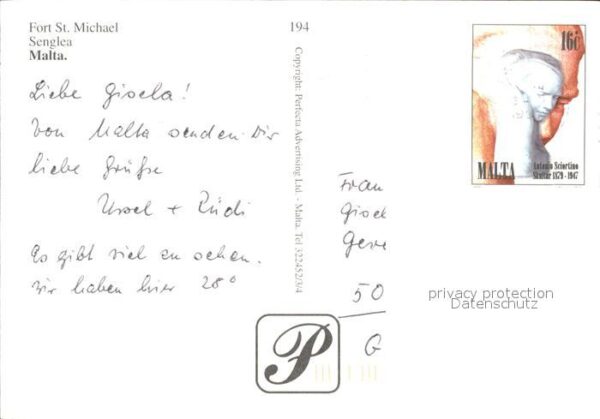 Fort St. Michael
Senglea
Malta.
194
Liebe Gisela!
Von Malta senden Dir
liebe Grüße
Ursel + Rudi
Es gibt viel zu sehen.
wir haben hier 28°
Copyright: Perfecta Advertising Ltd. - Malta. Tel 322452/3/4
16c
MALTA
Antonio Sciortino
Skultur 1879 - 1947
Frau
Gisel
Geve
50
G
P
privacy protection
Datenschutz